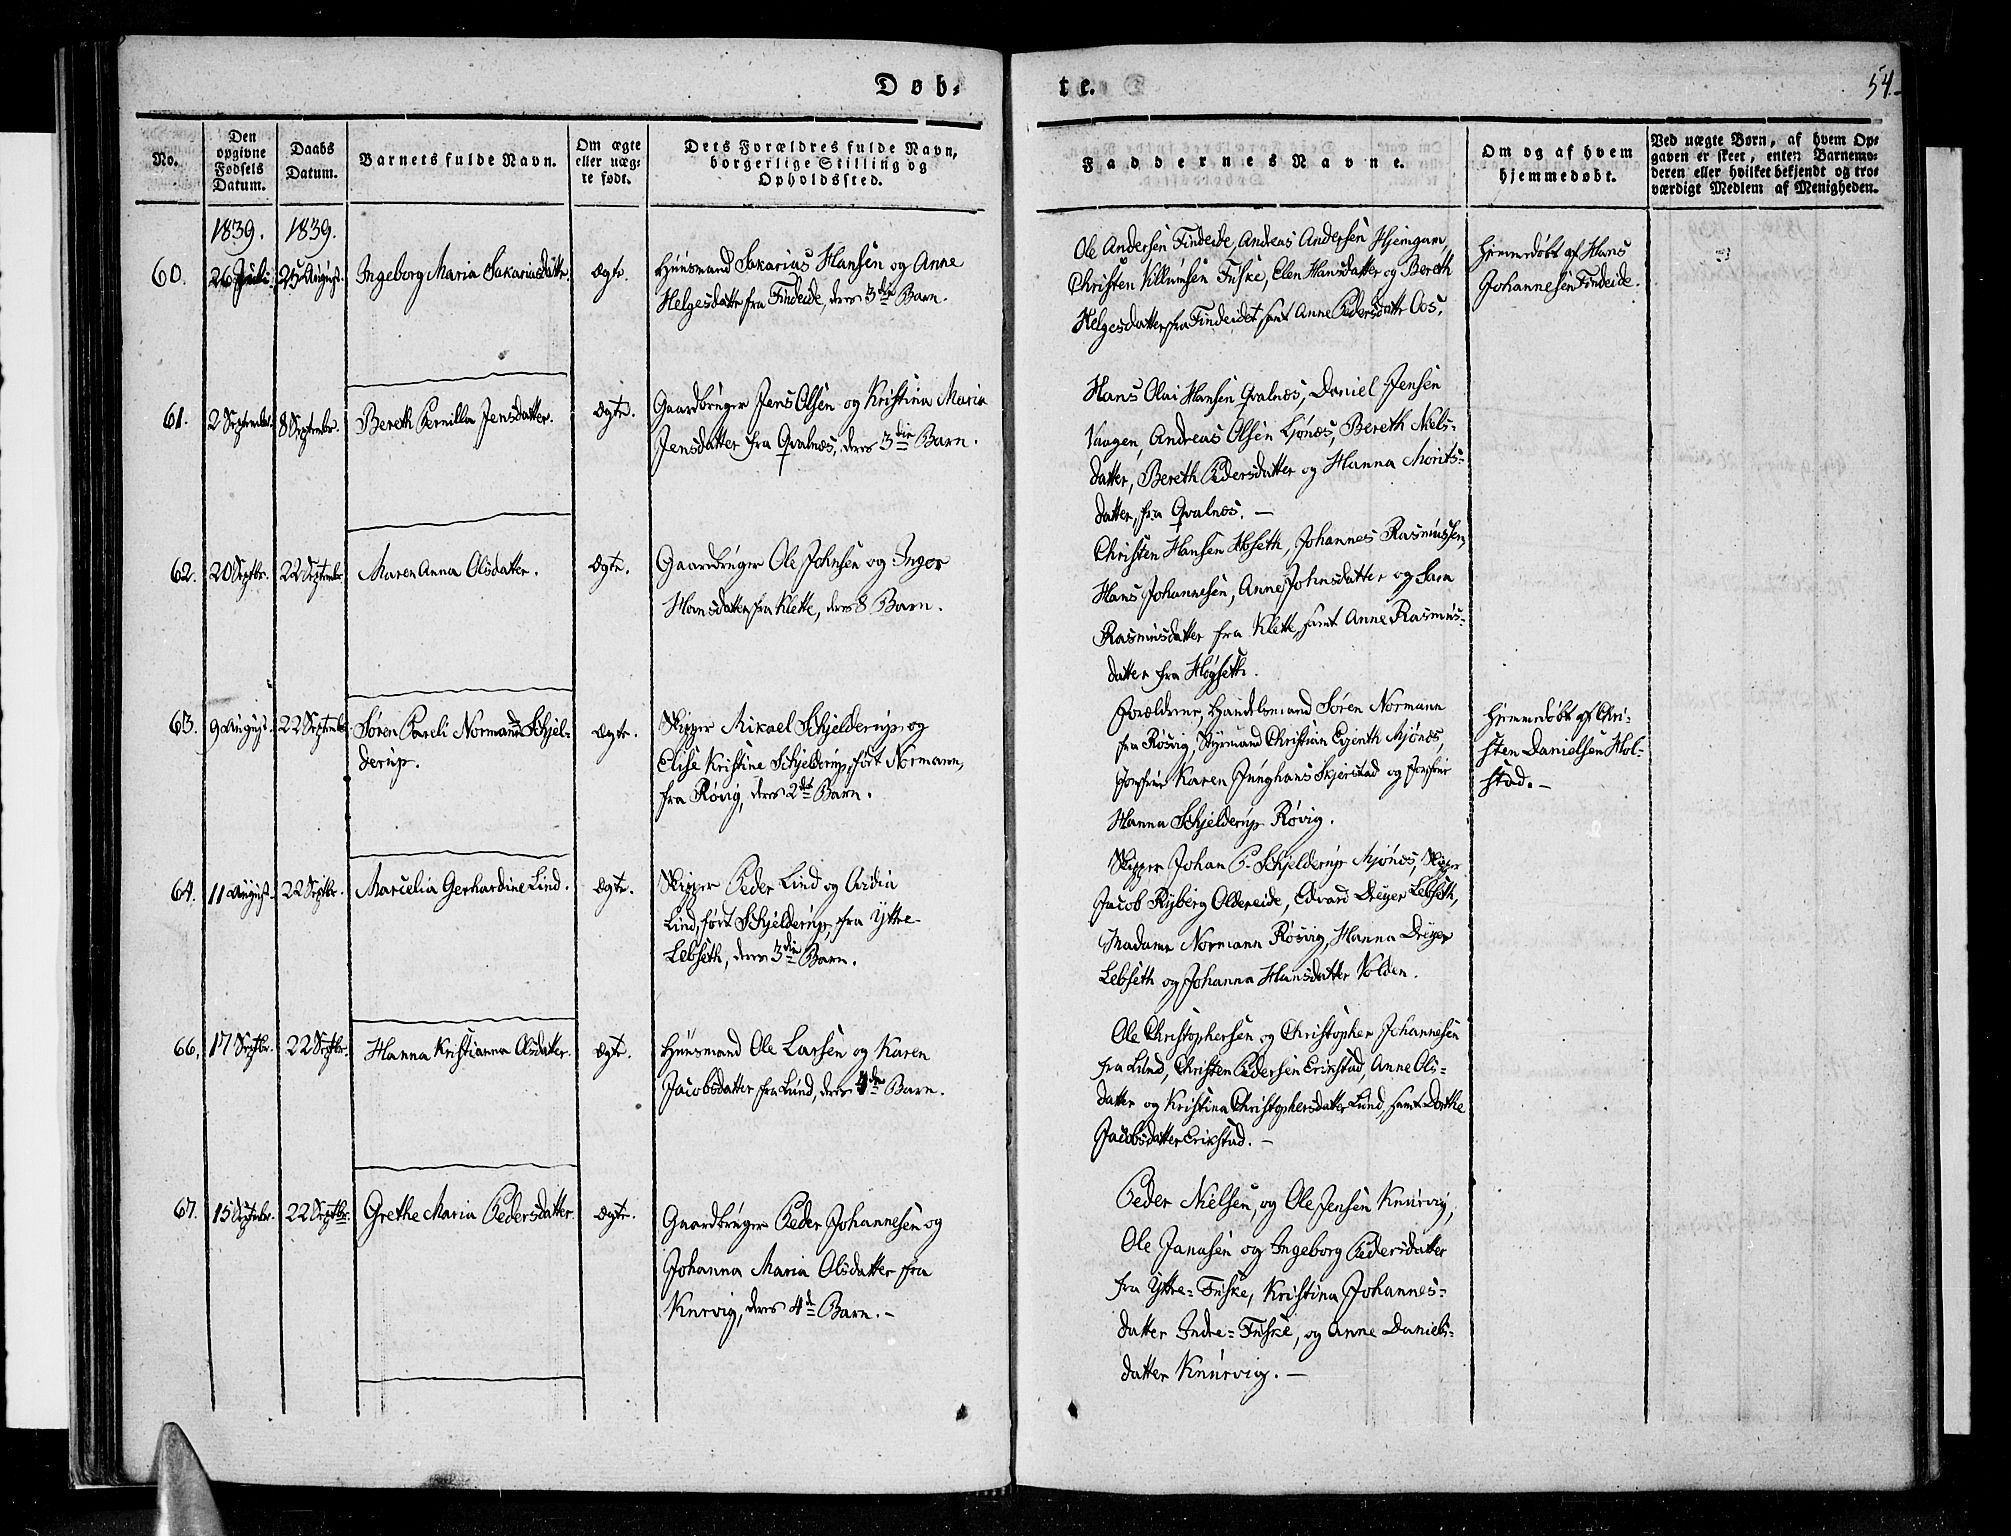 Døb-
te.
54.
No.
Den
opgivne
Fødsels
Datum.
Daabs
Datum.
Barnets fulde Navn.
Om ægte
eller uæg-
te født.
Dets Forældres fulde Navn,
borgerlige Stilling og
Opholdssted.
Faddernes Navne.
Om og af hvem
hjemmedøbt.
Ved uægte Børn, af hvem Op-
gaven er skeet, enten Barnemo-
deren eller hvilket bekjendt og tro-
værdigt Medlem af Menigheden.
1839.
1839.
60.
26 Juli.
25 August.
Ingeborg Maria Sakariasdatter.
Ægte.
Huusmand Sakarias Hansen og Anne
Helgesdatter fra Findeide, deres 3die Barn.
Ole Andersen Findeide, Andreas Andersen Hjemgam,
Christen Fuske, Elen Hansdatter og Bereth
Helgesdatter fra Findeidet samt Anne Pedersdatter Oos.
Hjemmedøbt af Hans
Johannesen Findeide.
61.
2 Septembr.
8 Septembr.
Bereth Pernilla Jensdatter.
Ægte.
Gaardbruger Jens Olsen og Kristina Maria
Jensdatter fra Qvalnæs, deres 3die Barn.
Hans Olai Hansen Qvalnæs, Daniel Jensen
Vaagen, Andreas Olsen Ljønæs, Bereth Niels-
datter, Bereth Pedersdatter og Hanna Morits-
datter, fra Qvalnæs. —
62.
20 Septbr.
22 Septembr.
Maren Anna Olsdatter.
Ægte.
Gaardbruger Ole Johnsen og Inger
Hansdatter fra Klette, deres 8 Barn.
Christen Hansen Høseth, Johannes Rasmussen,
Hans Johannesen, Anne Johnsdatter og Sara
Rasmusdatter fra Klette, samt Anne Rasmus-
datter fra Høgseth.
63.
9 August.
22 Septembr.
Søren Pareli Normann Schjel-
derup.
Ægte.
Skipper Mikael Schjelderup og
Elise Kristine Schjelderup, født Normann,
fra Røvig, deres 2det Barn.
Forældrene, Handelsmand Søren Normann
fra Røsvig, Styrmand Christian Mjønæs,
Jomfrue Karen Junghans Skjerstad og Jomfrue
Hanna Schjelderup Røvig.
Hjemmedøbt af Chri-
sten Danielsen Hol-
stad. —
64.
11 August.
22 Septbr.
Marselia Gerhardine Lind.
Ægte.
Skipper Peder Lind og
Lind, født Schjelderup, fra Yttre-
Lebseth, deres 3die Barn.
Skipper Johan P. Schjelderup Mjønæs, Skipper
Jacob Ryberg Oldereide, Edvard Dreyer Lebseth,
Madame Normann Røsvig, Hanna Dreyer
Lebseth og Johanna Hansdatter Volden.
66.
17 Septbr.
22 Septbr.
Hanna Kristianna Olsdatter.
Ægte.
Huusmand Ole Larsen og Karen
Jacobsdatter fra Lund, deres 4de Barn.
Ole Christophersen og Christopher Johannesen
fra Lund, Christen Pedersen Erikstad, Anne Ols-
datter og Kristina Christophersdatter Lund, samt Dorthe
Jacobsdatter Erikstad. —
67.
15 Septembr.
22 Septbr.
Grethe Maria Pedersdatter.
Ægte.
Gaardbruger Peder Johannesen og
Johanna Maria Olsdatter fra
Knrvig, deres 4de Barn. —
Peder Nielsen, og Ole Jensen Knurvig,
Ole Janasen og Ingeborg Pedersdatter
fra Yttre-Fuske, Kristina Johannes-
datter Indre-Fuske, og Anne Daniels-
datter Knurvig. —